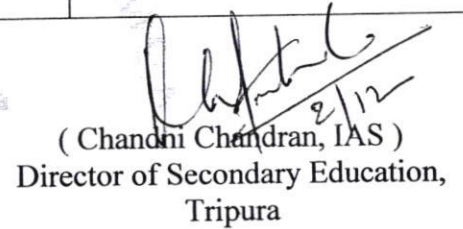 2/12
( Chandni Chandran, IAS )
Director of Secondary Education,
Tripura